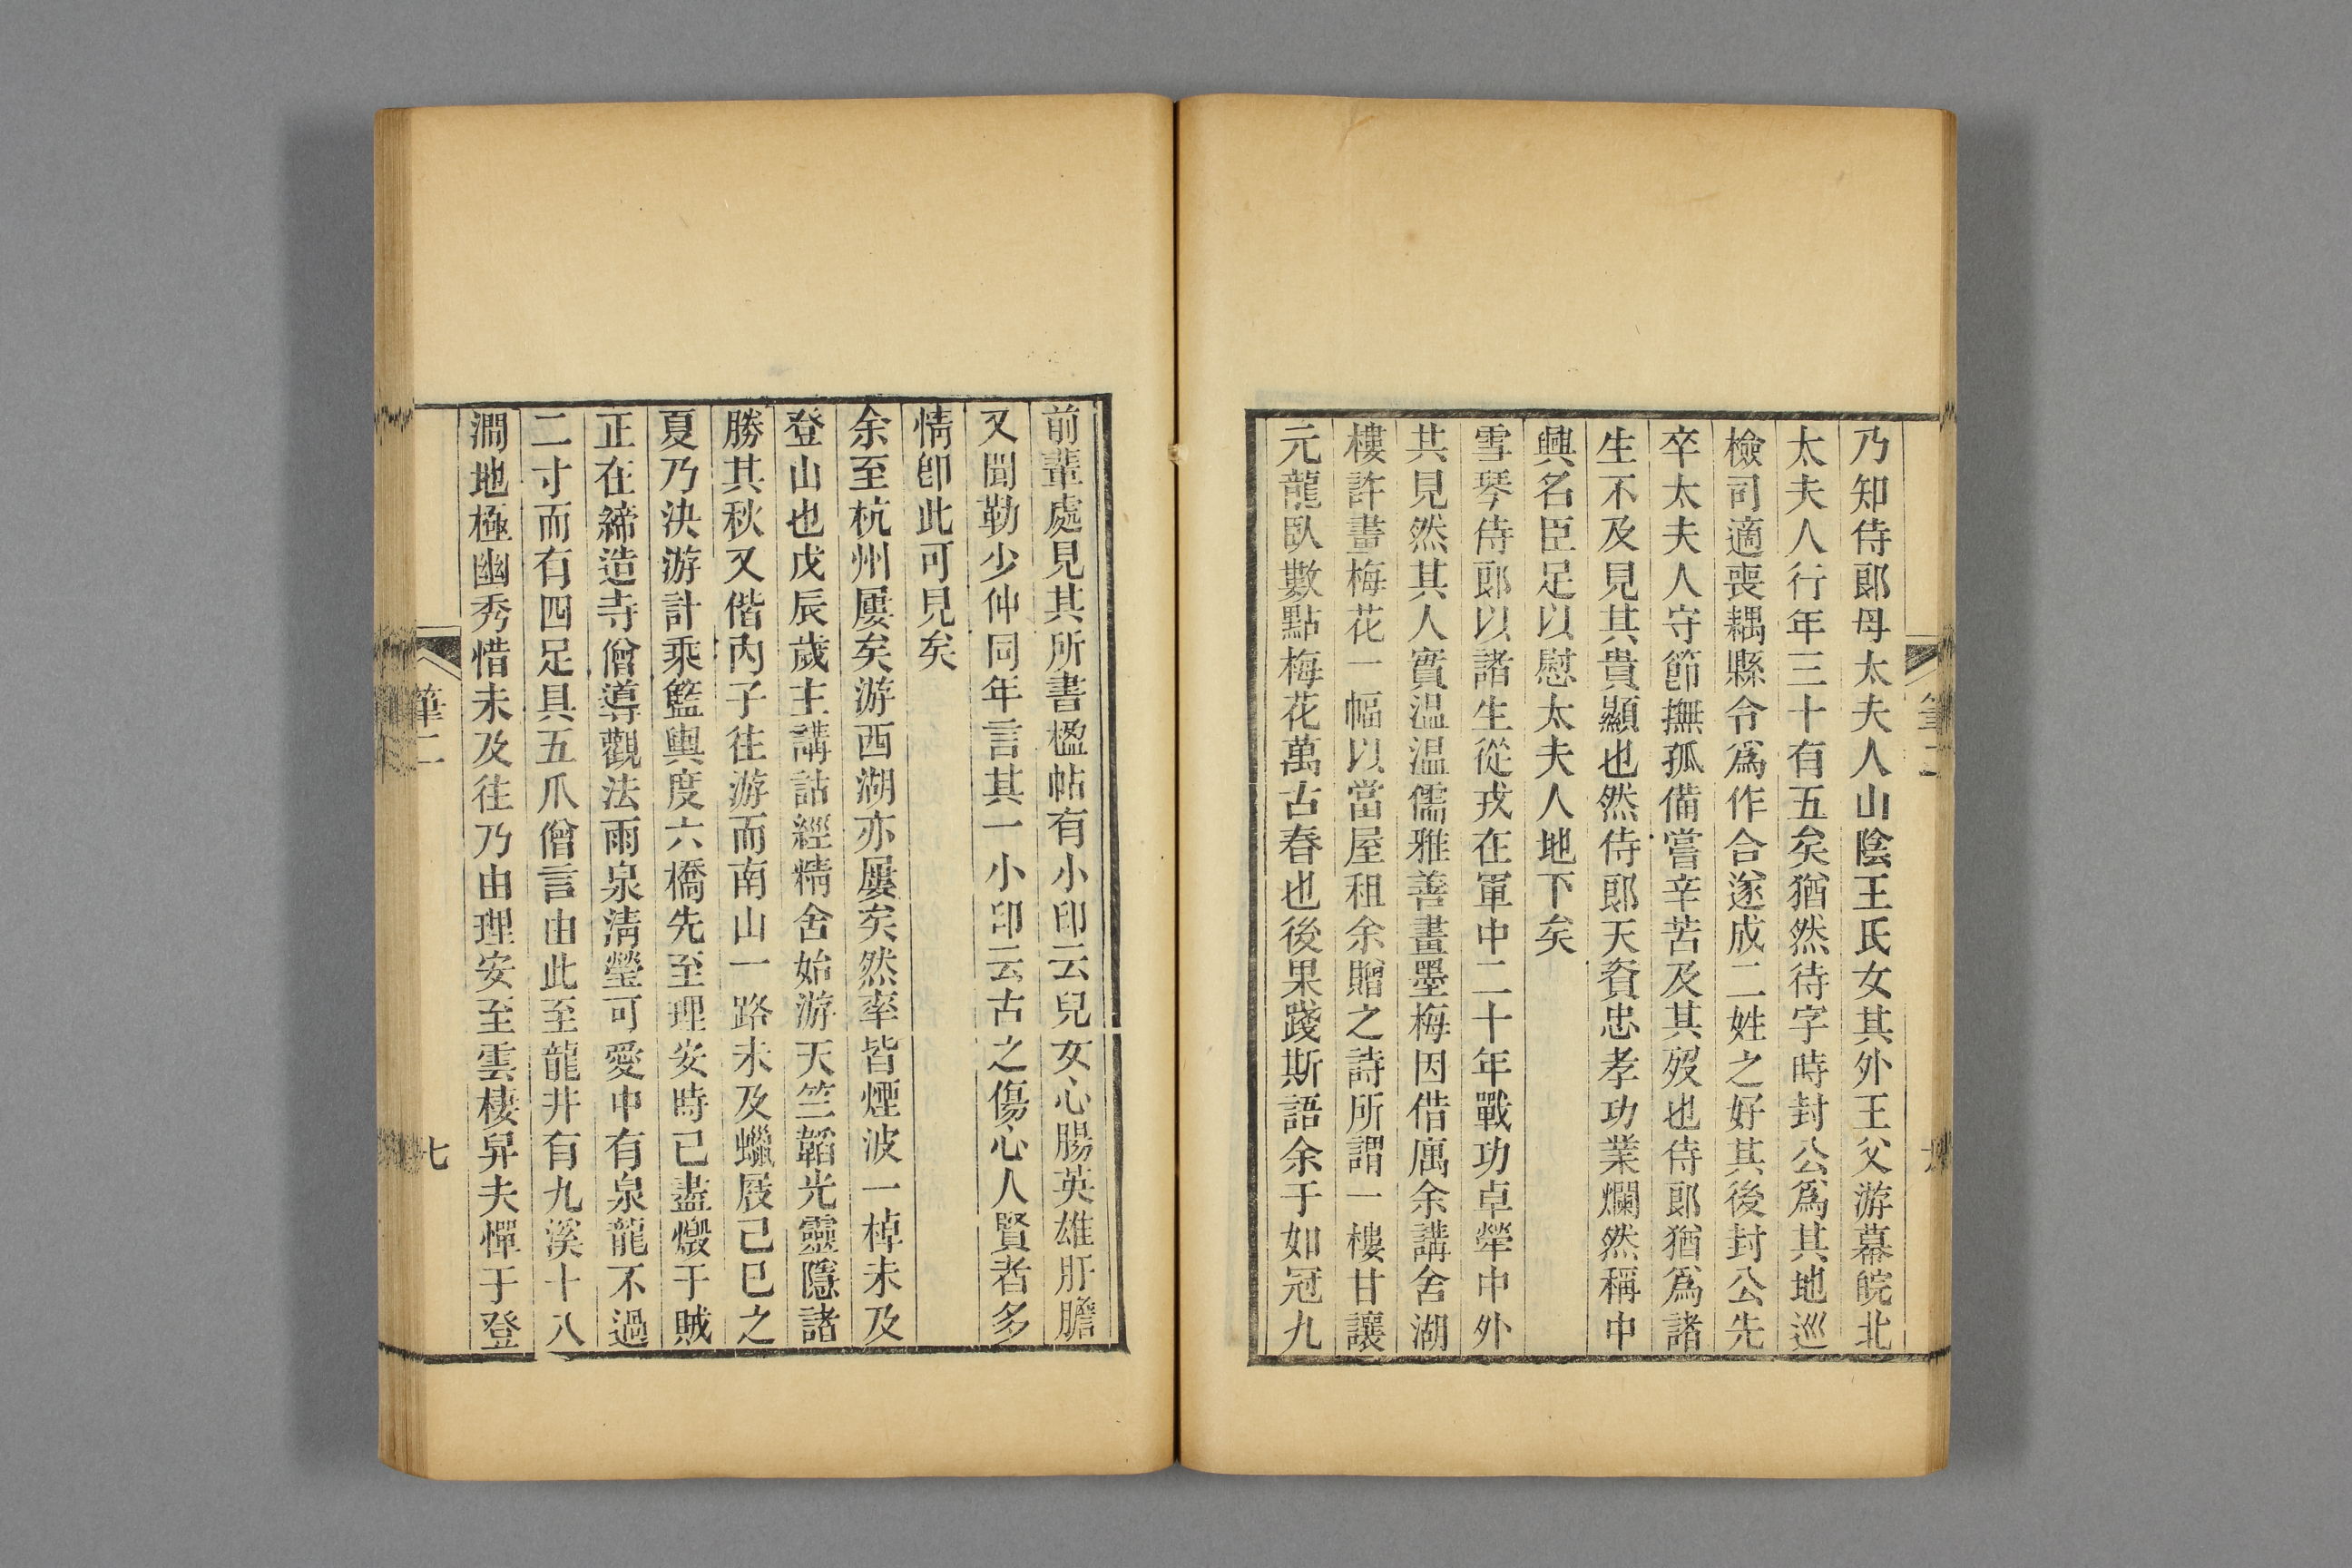 乃知侍郎母太夫人山陰王氏女其外王父游幕皖北
太夫人行年三十有五矣猶然待字時封公爲其地巡
檢司適喪耦縣令爲作合遂成二姓之好其後封公先
卒太夫人守節撫孤備嘗辛苦及其歿也侍郎猶爲諸
生不及見其貴顯也然侍郎天資忠孝功業爛然稱中
興名臣足以慰太夫人地下矣
雪琴侍郎以諸生從戎在軍中二十年戰功卓犖中外
共見然其人實温温儒雅善畫墨梅因借寓余講舍湖
樓許畫梅花一幅以當屋租余贈之詩所謂一樓甘讓
元龍臥數點梅花萬古春也後果踐斯語余于如冠九
前輩處見其所書楹帖有小印云兒女心腸英雄肝膽
又聞勒少仲同年言其一小印云古之傷心人賢者多
情卽此可見矣
余至杭州屢矣游西湖亦屢矣然率皆煙波一棹未及
登山也戊辰歲主講詁經精舍始游天竺韜光靈隱諸
勝其秋又偕內子往游而南山一路未及蠟屐己巳之
夏乃決游計乘籃輿度六橋先至理安時已盡燬于賊
正在締造寺僧導觀法雨泉淸瑩可愛中有泉龍不過
二寸而有四足具五爪僧言由此至龍井有九溪十八
澗地極幽秀惜未及往乃由理安至雲棲舁夫憚于登
筆二
七